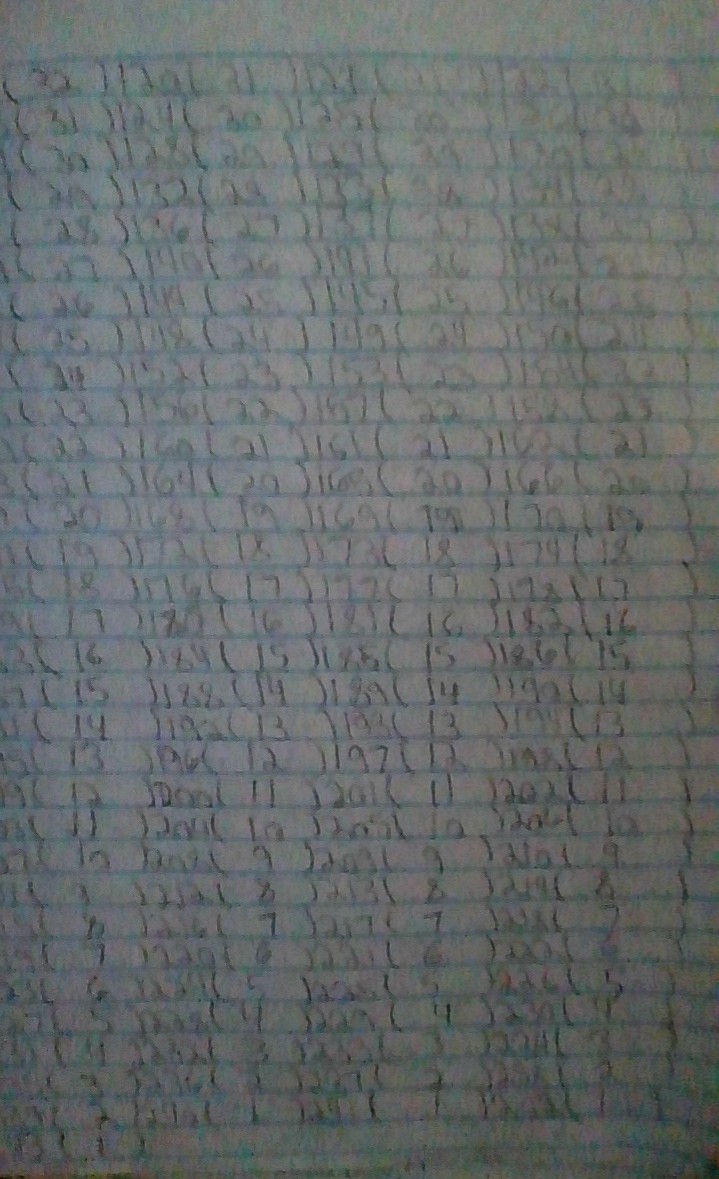 ( 32 )120( 31 )121(
( 31 )124( 30 )125( 30
( 30 )128( 29 )129( 29 )130( 29
( 29 )132( 28 )133( 28 )134( 28
( 28 )136( 27 )137( 27 )138( 27 )
( 27 )140( 26 )141( 26 )142( 26 )
( 26 )144( 25 )145( 25 )146( 25 )
( 25 )148( 24 )149( 24 )150( 24 )
( 24 )152( 23 )153( 23 )154( 23 )
( 23 )156( 22 )157( 22 )158( 23
( 22 )160( 21 )161( 21 )162( 21
( 21 )164( 20 )165( 20 )166( 20 )
( 20 )168( 19 )169( 19 )170( 19 )
( 19 )172( 18 )173( 18 )174( 18 )
( 18 )176( 17 )177( 17 )178( 17 )
( 17 )180( 16 )181( 16 )182( 16 )
3( 16 )184( 15 )185( 15 )186( 15 )
7( 15 )188( 14 )189( 14 )190( 14 )
1( 14 )192( 13 )193( 13 )194( 13 )
( 13 )196( 12 )197( 12 )198( 12 )
9( 12 )200( 11 )201( 11 )202( 11 )
( 11 )204( 10 )205( 10 )206( 10 )
07( 10 )208( 9 )209( 9 )210( 9 )
( 9 )212( 8 )213( 8 )214( 8 )
( 8 )216( 7 )217( 7 )218( 7 )
( 7 )220( 6 )221( 6 )222( 6 )
23( 6 )224( 5 )225( 5 )226( 5 )
27( 5 )228( 4 )229( 4 )230( 4 )
( 4 )232( 3 )233( 3 )234( 3 )
( 3 )236( 2 )237( 2 )238( 2 )
39( 2 )240( 1 )241( 1 )242( 1 )
( 1 )